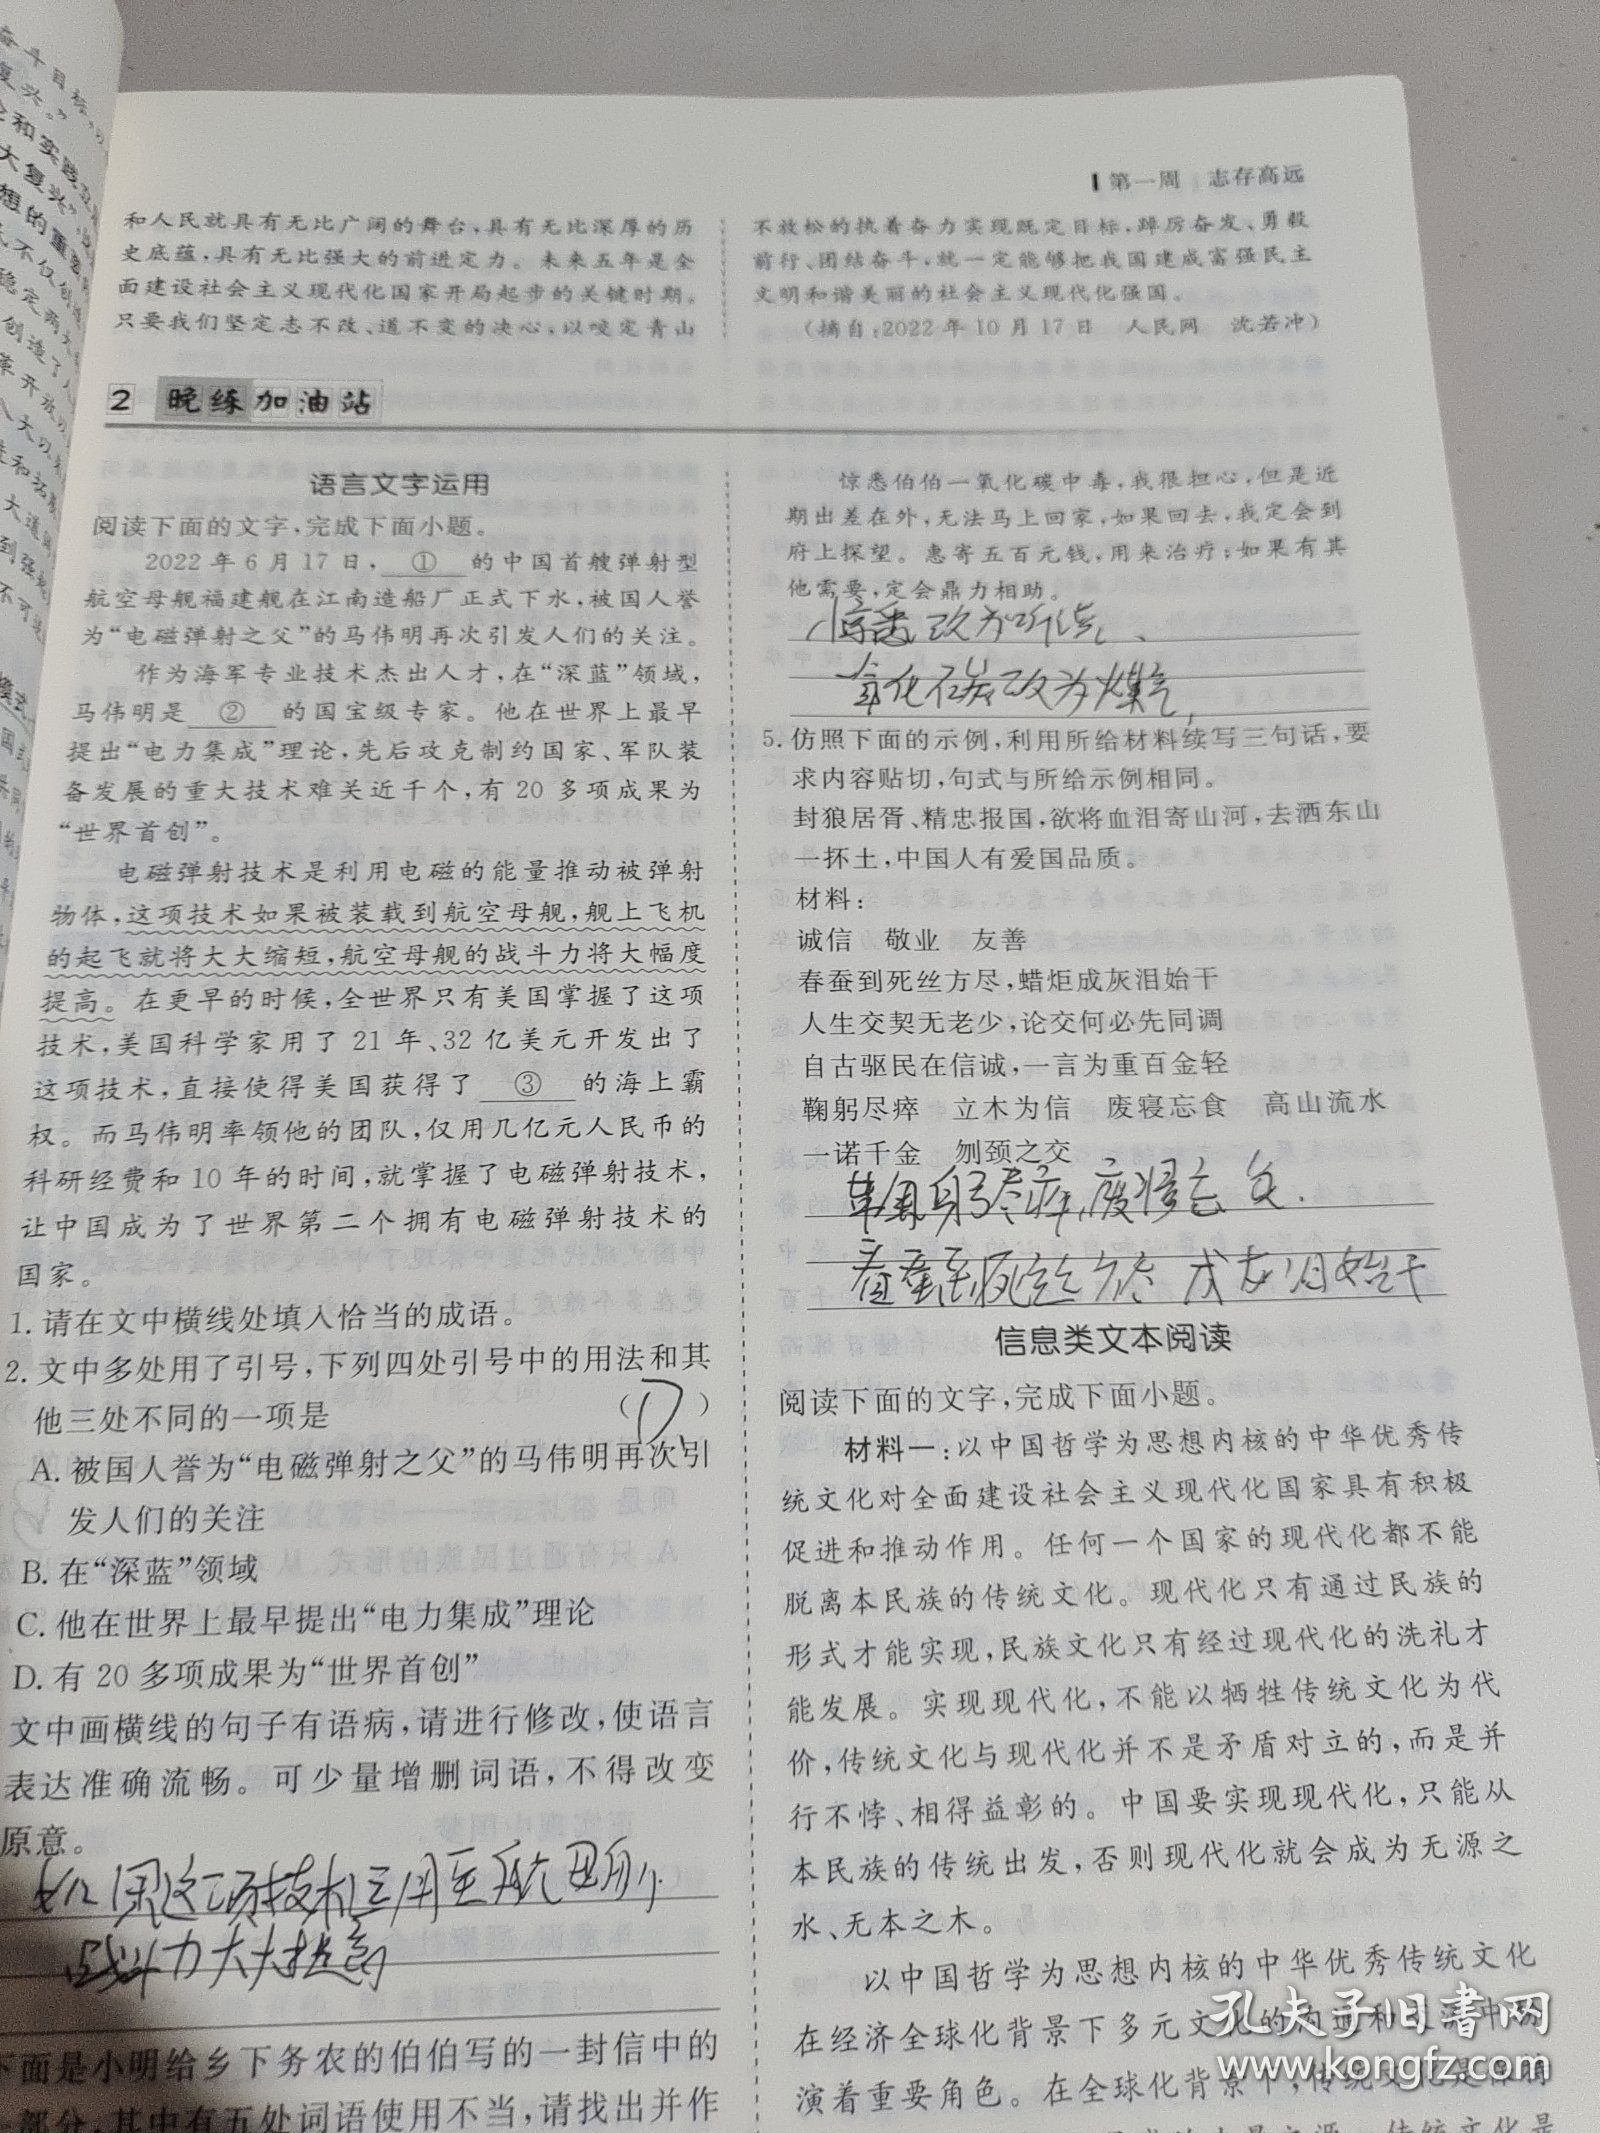 第一周 志存高远
和人民就具有无比广阔的舞台,具有无比深厚的历
史底蕴,具有无比强大的前进定力。未来五年是全
面建设社会主义现代化国家开局起步的关键时期。
只要我们坚定志不改、道不变的决心,以咬定青山
不放松的执着奋力实现既定目标,踔厉奋发、勇毅
前行、团结奋斗,就一定能够把我国建成富强民主
文明和谐美丽的社会主义现代化强国。
(摘自:2022年10月17日 人民网 沈若冲)
2 晚练加油站
语言文字运用
阅读下面的文字,完成下面小题。
2022年6月17日,①的中国首艘弹射型
航空母舰福建舰在江南造船厂正式下水,被国人誉
为“电磁弹射之父”的马伟明再次引发人们的关注。
作为海军专业技术杰出人才,在“深蓝”领域,
马伟明是②的国宝级专家。他在世界上最早
提出“电力集成”理论,先后攻克制约国家、军队装
备发展的重大技术难关近千个,有20多项成果为
“世界首创”。
电磁弹射技术是利用电磁的能量推动被弹射
物体,这项技术如果被装载到航空母舰,舰上飞机
的起飞就将大大缩短,航空母舰的战斗力将大幅度
提高。在更早的时候,全世界只有美国掌握了这项
技术,美国科学家用了21年、32亿美元开发出了
这项技术,直接使得美国获得了③的海上霸
权。而马伟明率领他的团队,仅用几亿元人民币的
科研经费和10年的时间,就掌握了电磁弹射技术,
让中国成为了世界第二个拥有电磁弹射技术的
国家。
1. 请在文中横线处填入恰当的成语。
2. 文中多处用了引号,下列四处引号中的用法和其
他三处不同的一项是 (D)
A. 被国人誉为“电磁弹射之父”的马伟明再次引
发人们的关注
B. 在“深蓝”领域
C. 他在世界上最早提出“电力集成”理论
D. 有20多项成果为“世界首创”
文中画横线的句子有语病,请进行修改,使语言
表达准确流畅。可少量增删词语,不得改变
原意。
如果这项技术运用至航母舰
战斗力大大提高
下面是小明给乡下务农的伯伯写的一封信中的
部分,其中有五处词语使用不当,请找出并作
惊悉伯伯一氧化碳中毒,我很担心,但是近
期出差在外,无法马上回家,如果回去,我定会到
府上探望。惠寄五百元钱,用来治疗;如果有其
他需要,定会鼎力相助。
惊悉改为听说、
氧化碳改为煤气,
5. 仿照下面的示例,利用所给材料续写三句话,要
求内容贴切,句式与所给示例相同。
封狼居胥、精忠报国,欲将血泪寄山河,去洒东山
一抔土,中国人有爱国品质。
材料:
诚信 敬业 友善
春蚕到死丝方尽,蜡炬成灰泪始干
人生交契无老少,论交何必先同调
自古驱民在信诚,一言为重百金轻
鞠躬尽瘁 立木为信 废寝忘食 高山流水
一诺千金 刎颈之交
鞠躬尽瘁,废寝忘食.
春蚕到死丝方尽 成灰泪始干
信息类文本阅读
阅读下面的文字,完成下面小题。
材料一:以中国哲学为思想内核的中华优秀传
统文化对全面建设社会主义现代化国家具有积极
促进和推动作用。任何一个国家的现代化都不能
脱离本民族的传统文化。现代化只有通过民族的
形式才能实现,民族文化只有经过现代化的洗礼才
能发展。实现现代化,不能以牺牲传统文化为代
价,传统文化与现代化并不是矛盾对立的,而是并
行不悖、相得益彰的。中国要实现现代化,只能从
本民族的传统出发,否则现代化就会成为无源之
水、无本之木。
以中国哲学为思想内核的中华优秀传统文化
在经济全球化背景下多元文化的沟通和交流中扮
演着重要角色。在全球化背景下,传统文化是
孔夫子旧书网
www.kongfz.com